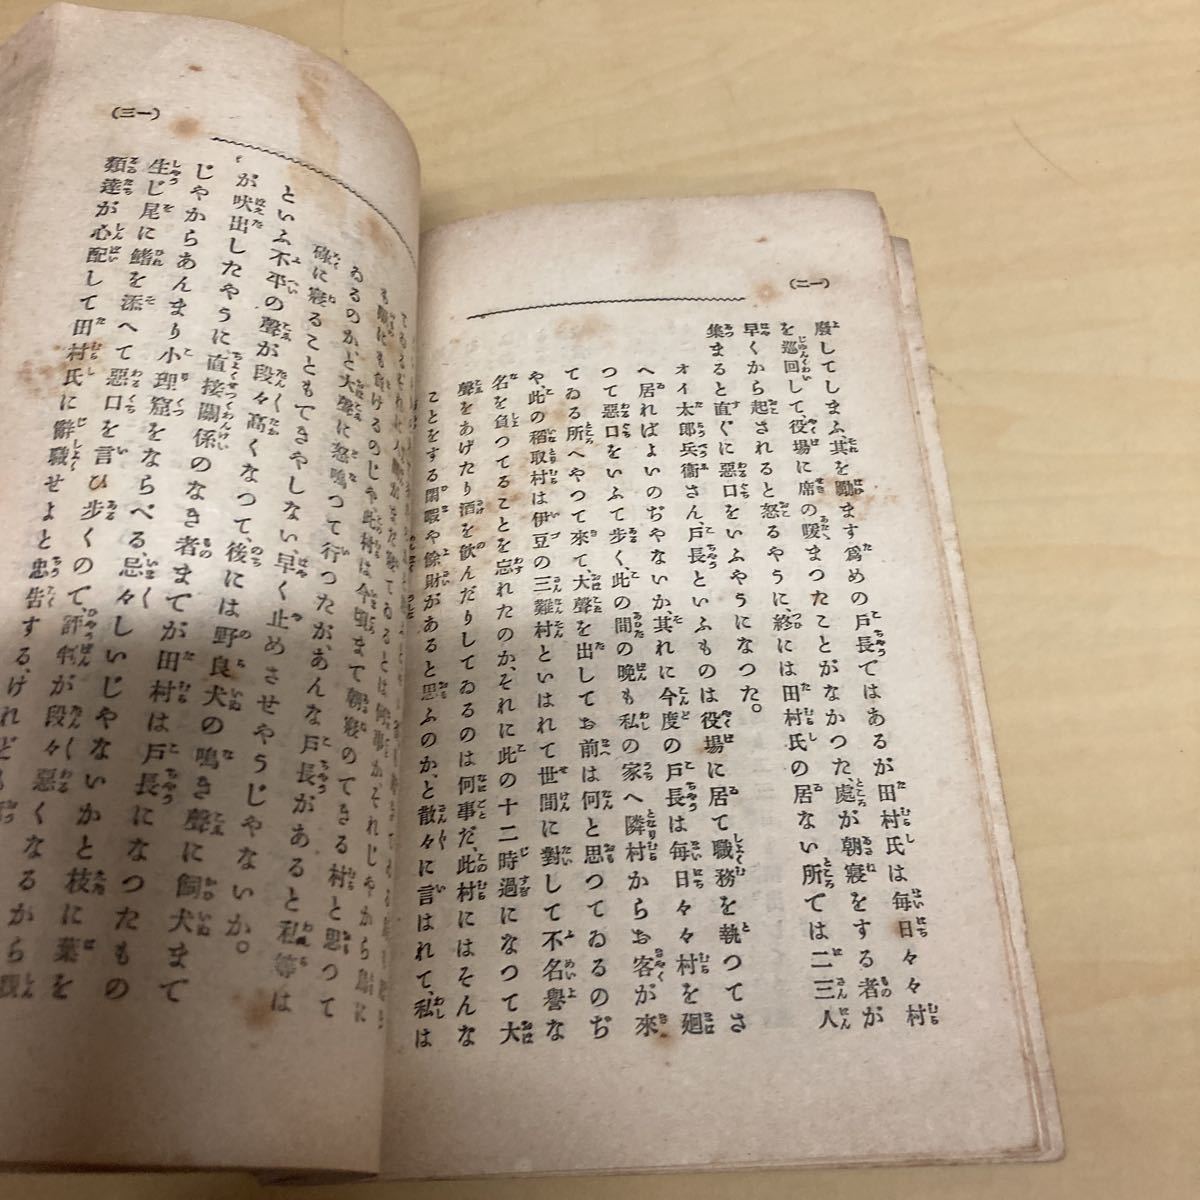 (一二)
廢してしまふ其を勵ます爲めの戸長ではあるが田村氏は毎日々々村
を巡回して、役場に席の暖まつたことがなかつた、處が朝寢をする者が
早くから起されると怒るやうに、終には田村氏の居ない所では二三人
集まると直ぐに惡口をいふやうになつた。
オイ太郎兵衞さん、戸長といふものは役場に居て職務を執つてさ
へ居ればよいのぢやないか、其れに今度の戸長は毎日々々村を廻
つて惡口をいふて歩く、此の間の晩も私の家へ隣村からお客が來
てゐる所へやつて來て、大聲を出してお前は何と思つてゐるのぢ
や、此の稻取村は伊豆の三難村といはれて世間に對して不名譽な
名を負つてることを忘れたのか、それに此の十二時過になつて大
聲をあげたり酒を飮んだりしてゐるのは何事だ、此村にはそんな
ことをする閑暇や餘財があると思ふのか、と散々に言はれて、私は
(一三)
ゐるのか、と大聲に怒鳴つて行つたが、あんな戸長があると私等は
碌に寢ることもてきやしない、早く止めさせやうじやないか。
といふ不平の聲が段々高くなつて、後には野良犬の鳴き聲に飼犬まて
が吠出したやうに直接關係のなき者まてが田村は戸長になつたもの
じやからあんまり小理窟をならべる、忌々しいじやないかと枝に葉を
生じ尾に鰭を添へて惡口を言ひ歩くのて、評判が段々惡くなるから親
類達が心配して田村氏に辭職せよと忠告する、けれども